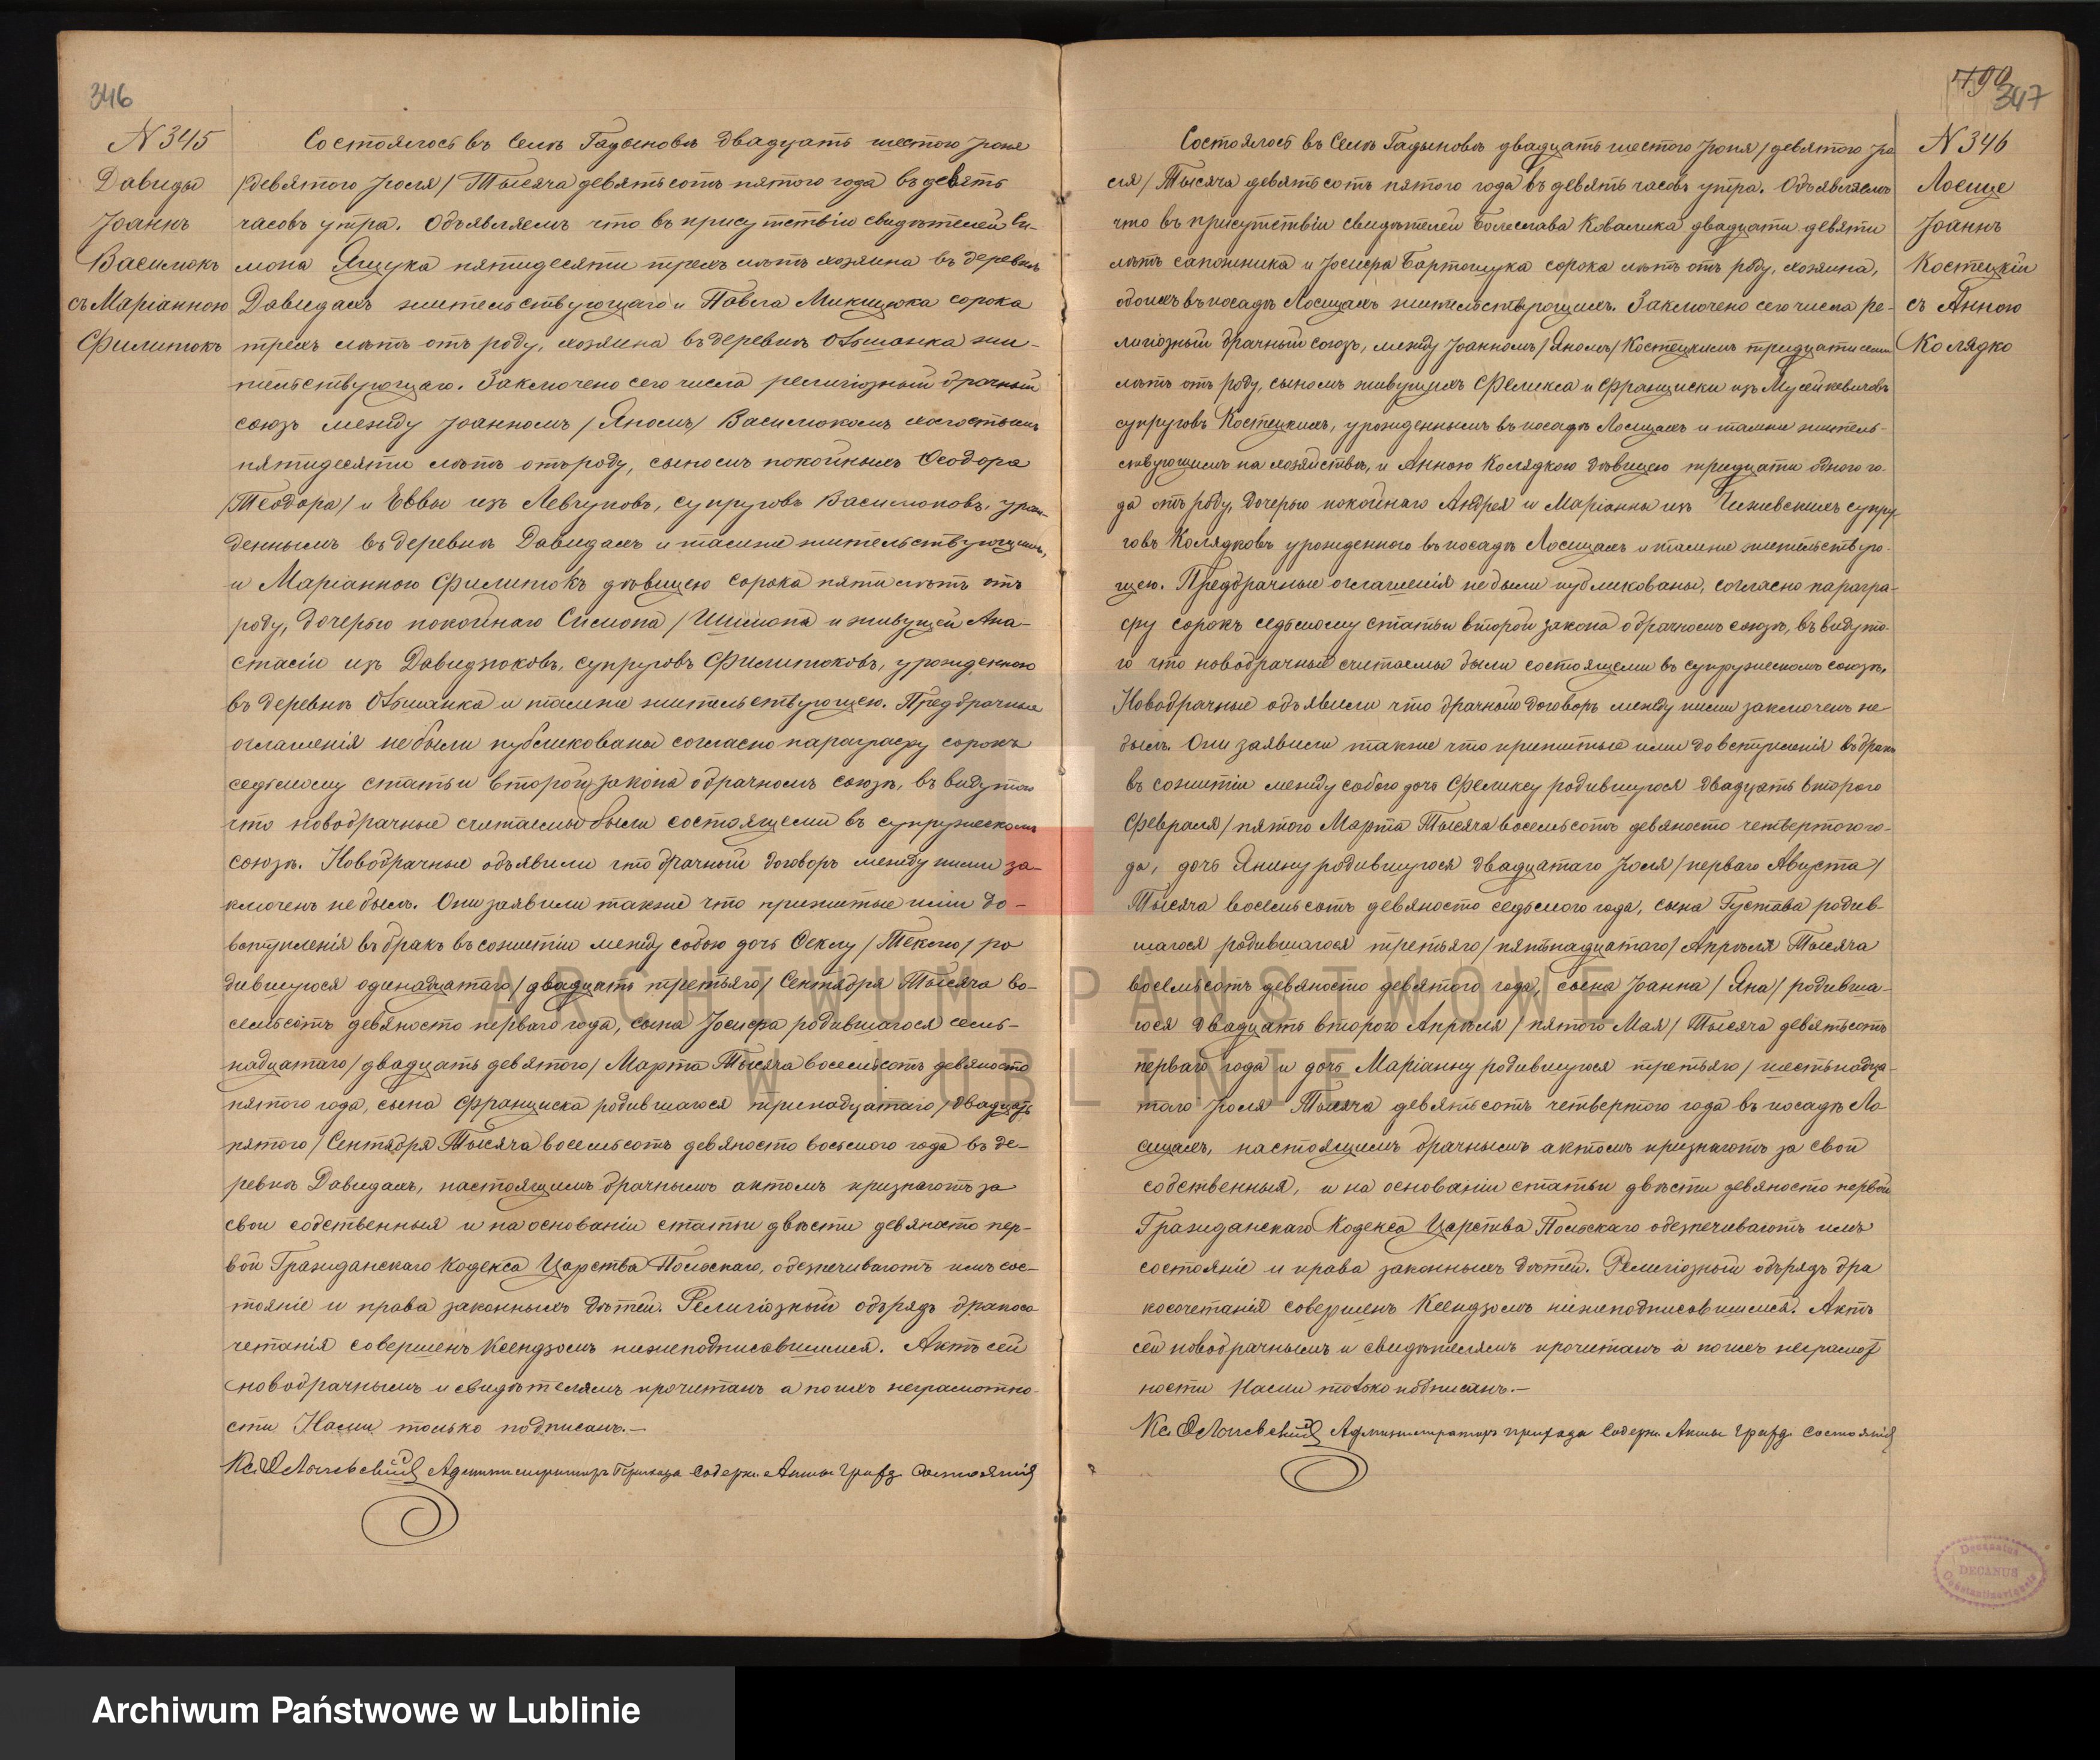 346
N 345
Давиды
Іоаннъ
Василюкъ
съ Маріанною
Филипюкъ
Состоялось въ Селѣ Гадыновѣ двадцать шестого Іюня
/девятого Іюля/ Тысяча девятьсотъ пятого года въ девять
часовъ утра. Объявляемъ что въ присутствіи свидѣтелей Си-
мона Ящука пятидесяти трехъ лѣтъ хозяина въ деревнѣ
Давидахъ жительствующаго и Павла Микицюка сорока
трехъ лѣтъ отъ роду, хозяина въ деревнѣ Ольшанка жи-
тельствующаго. Заключено сего числа религіозный брачный
союзъ между Іоанномъ /Яномъ/ Василюкомъ холостымъ
пятидесяти лѣтъ отъ роду, сыномъ покойныхъ Ѳеодора
/Теодора/ и Еввы изъ Левчуковъ, супруговъ Василюковъ, урож-
деннымъ въ деревнѣ Давидахъ и тамже жительствующимъ,
и Маріанною Филипюкъ дѣвицею сорока пяти лѣтъ отъ
роду, дочерью покойнаго Симона /Шимона и живущей Ана-
стасіи изъ Давидзюковъ, супруговъ Филипюковъ, урожденною
въ деревнѣ Ольшанка и тамже жительствующею. Предбрачные
оглашенія небыли публикованы согласно параграфу сорокъ
седьмому статьи второй закона о брачномъ союзѣ, въ виду того
что новобрачные считаемы были состоящеми въ супружескомъ
союзѣ. Новобрачные объявили что брачный договоръ между ними за-
ключенъ небылъ. Они заявили также что прижитые ими до-
вступленія въ бракъ въ сожитіи между собою дочь Ѳеклу /Теклю/ ро
дившуюся одинадцатаго /двадцать третьяго/ Сентября Тысяча во-
семьсотъ девяносто перваго года, сына Іосифа родившагося семь-
надцатаго /двадцать девятого/ Марта Тысяча восемьсотъ девяносто
пятого года, сына Франциска родившагося тринадцатаго /двадцать
пятого/ Сентября Тысяча восемьсотъ девяносто восьмого года въ де-
ревнѣ Давидахъ, настоящимъ брачнымъ актомъ признаютъ за
свои собственныя и на основаніи статьи двѣсти девяносто пер-
вой Гражданскаго Кодекса Царства Польскаго, обезпечиваютъ имъ сос-
тояніе и права законныхъ дѣтей. Религіозный обрядъ бракосо
четанія совершенъ Ксендзомъ нижеподписавшимся. Актъ сей
новобрачнымъ и свидѣтелямъ прочитанъ а по ихъ неграмотно-
сти Нами только подписанъ.—
Администраторъ Прихода Содерж. Акты Гражд. Состоянія
347
N 346
Лосице
Іоаннъ
Костецкій
съ Анною
Колядко
Состоялось въ Селѣ Гадыновѣ двадцать шестого Іюня /девятого Ію
ля/ Тысяча девятьсотъ пятого года въ девять часовъ утра. Объявляемъ
что въ присутствіи свидѣтелей Болеслава Ковалика двадцати девяти
лѣтъ сапожника и Іосифа Бартошука сорока лѣтъ отъ роду, хозяина,
обоихъ въ посадѣ Лосицахъ жительствующихъ. Заключено сего числа ре-
лигіозный брачный союзъ, между Іоанномъ /Яномъ/ Костецкимъ тридцати семи
лѣтъ отъ роду, сыномъ живущихъ Феликса и Франциски изъ Мусейкевичовъ
супруговъ Костецкихъ, урожденнымъ въ посадѣ Лосицахъ и тамже житель-
ствующимъ на хозяйствѣ, и Анною Колядкою дѣвицею тридцати одного го-
да отъ роду, дочерью покойнаго Андрея и Маріанны изъ Чижевскихъ супру
говъ Колядковъ урожденного въ посадѣ Лосицахъ и тамже жительствую-
щею. Предбрачные оглашенія не были публикованы, согласно парагра-
фу сорокъ седьмому статьи второй закона о брачномъ союзѣ, въ виду то-
го что новобрачный считаемы были состоящеми въ супружескомъ союзѣ,
Новобрачные объявили что брачный договоръ между ними заключенъ не
былъ. Они заявили также что прижитые ими до вступленія въ бракъ
въ сожитіи между собою дочь Феликсу родившуюся двадцать второго
Февраля /пятого Марта Тысяча восемьсотъ девяносто четвертого го-
да, дочь Янину родившуюся двадцатаго Іюля /перваго Августа/
Тысяча восемьсотъ девяносто седьмого года, сына Густава родив-
шагося родившагося третьяго /пятнадцатаго/ Апрѣля Тысяча
восемьсотъ девяносто девятого года, сына Іоанна /Яна/ родивша-
гося двадцать второго Апрѣля /пятого Мая/ Тысяча девятьсотъ
перваго года и дочь Маріанну родившуюся третьяго /шестьнадца-
таго Іюля Тысяча девятьсотъ четвертого года въ посадѣ Ло
сицахъ, настоящимъ брачнымъ актомъ признаютъ за свои
собственныя, и на основаніи статьи двѣсти девяносто первой
Гражданскаго Кодекса Царства Польскаго обезпечиваютъ имъ
состояніе и права законныхъ дѣтей. Религіозный обрядъ бра
косочетанія совершенъ Ксендзомъ нижеподписавшимся. Актъ
сей новобрачнымъ и свидѣтелямъ прочитанъ а по ихъ неграмот
ности Нами только подписанъ.—
Администраторъ прихода Содерж. Акты Гражд. Состоянія
DECANUS
ARCHIWUM PAŃSTWOWE
W LUBLINIE
Archiwum Państwowe w Lublinie